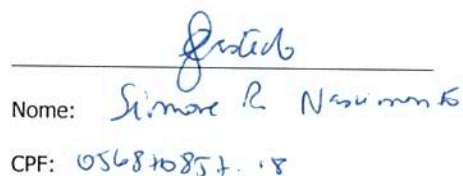 Nome: Simone R Nascimento
CPF: 056870857.18